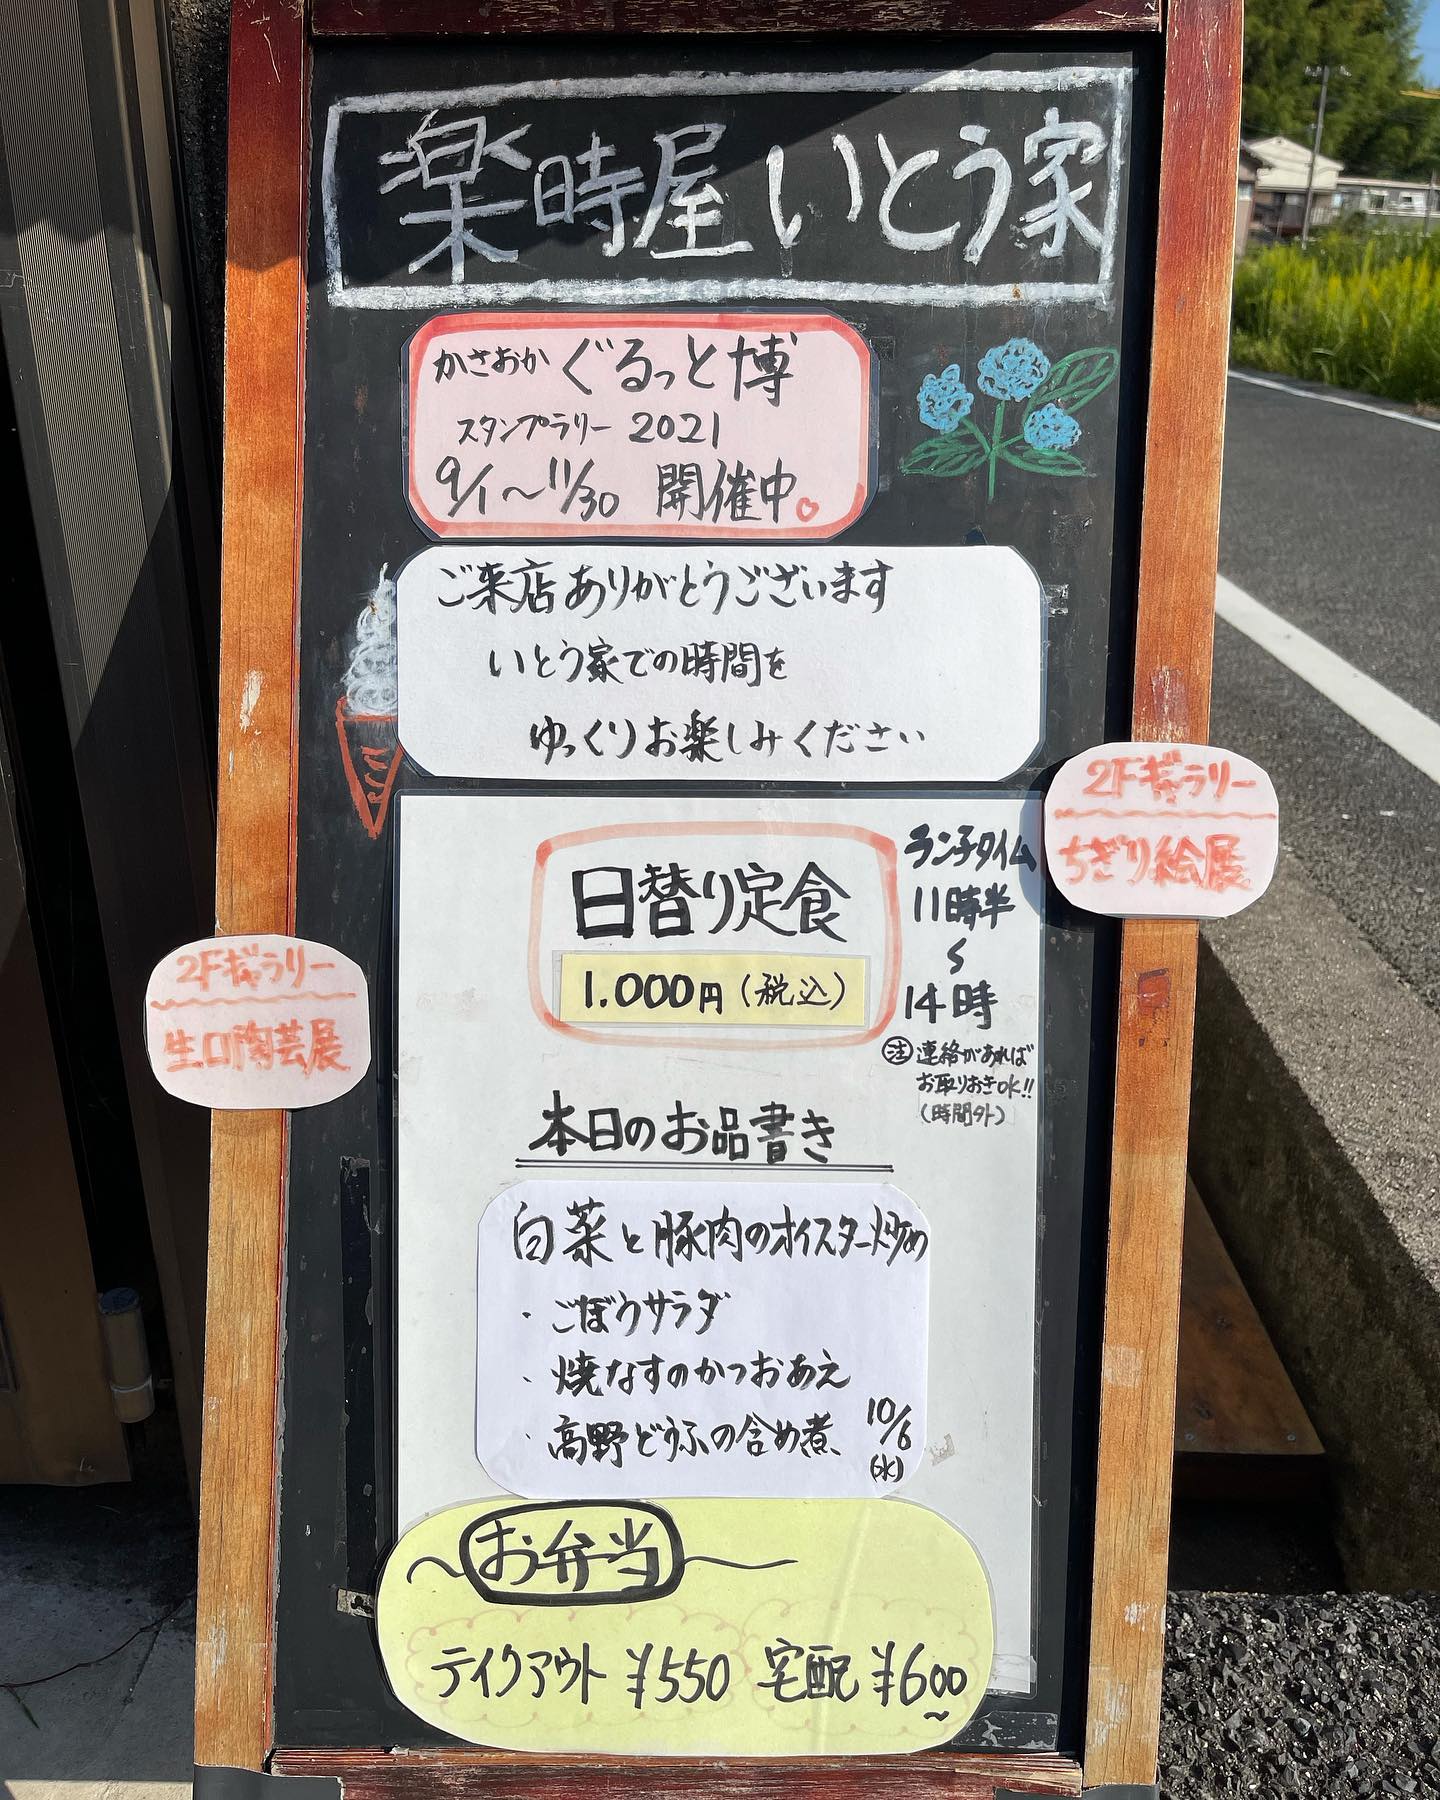 楽時屋 いとう家
かさおか ぐるっと博
スタンプラリー 2021
9/1～11/30 開催中。
ご来店ありがとうございます
いとう家での時間を
ゆっくりお楽しみください
2Fギャラリー
ちぎり絵展
2Fギャラリー
生口陶芸展
日替り定食
1.000円(税込)
ランチタイム
11時半
〜
14時
注 連絡があれば
お取りおきOK!!
(時間外)
本日のお品書き
白菜と豚肉のオイスター炒め
・ごぼうサラダ
・焼なすのかつおあえ
・高野どうふの含め煮
10/6
(水)
～お弁当～
テイクアウト ¥550 宅配 ¥600～